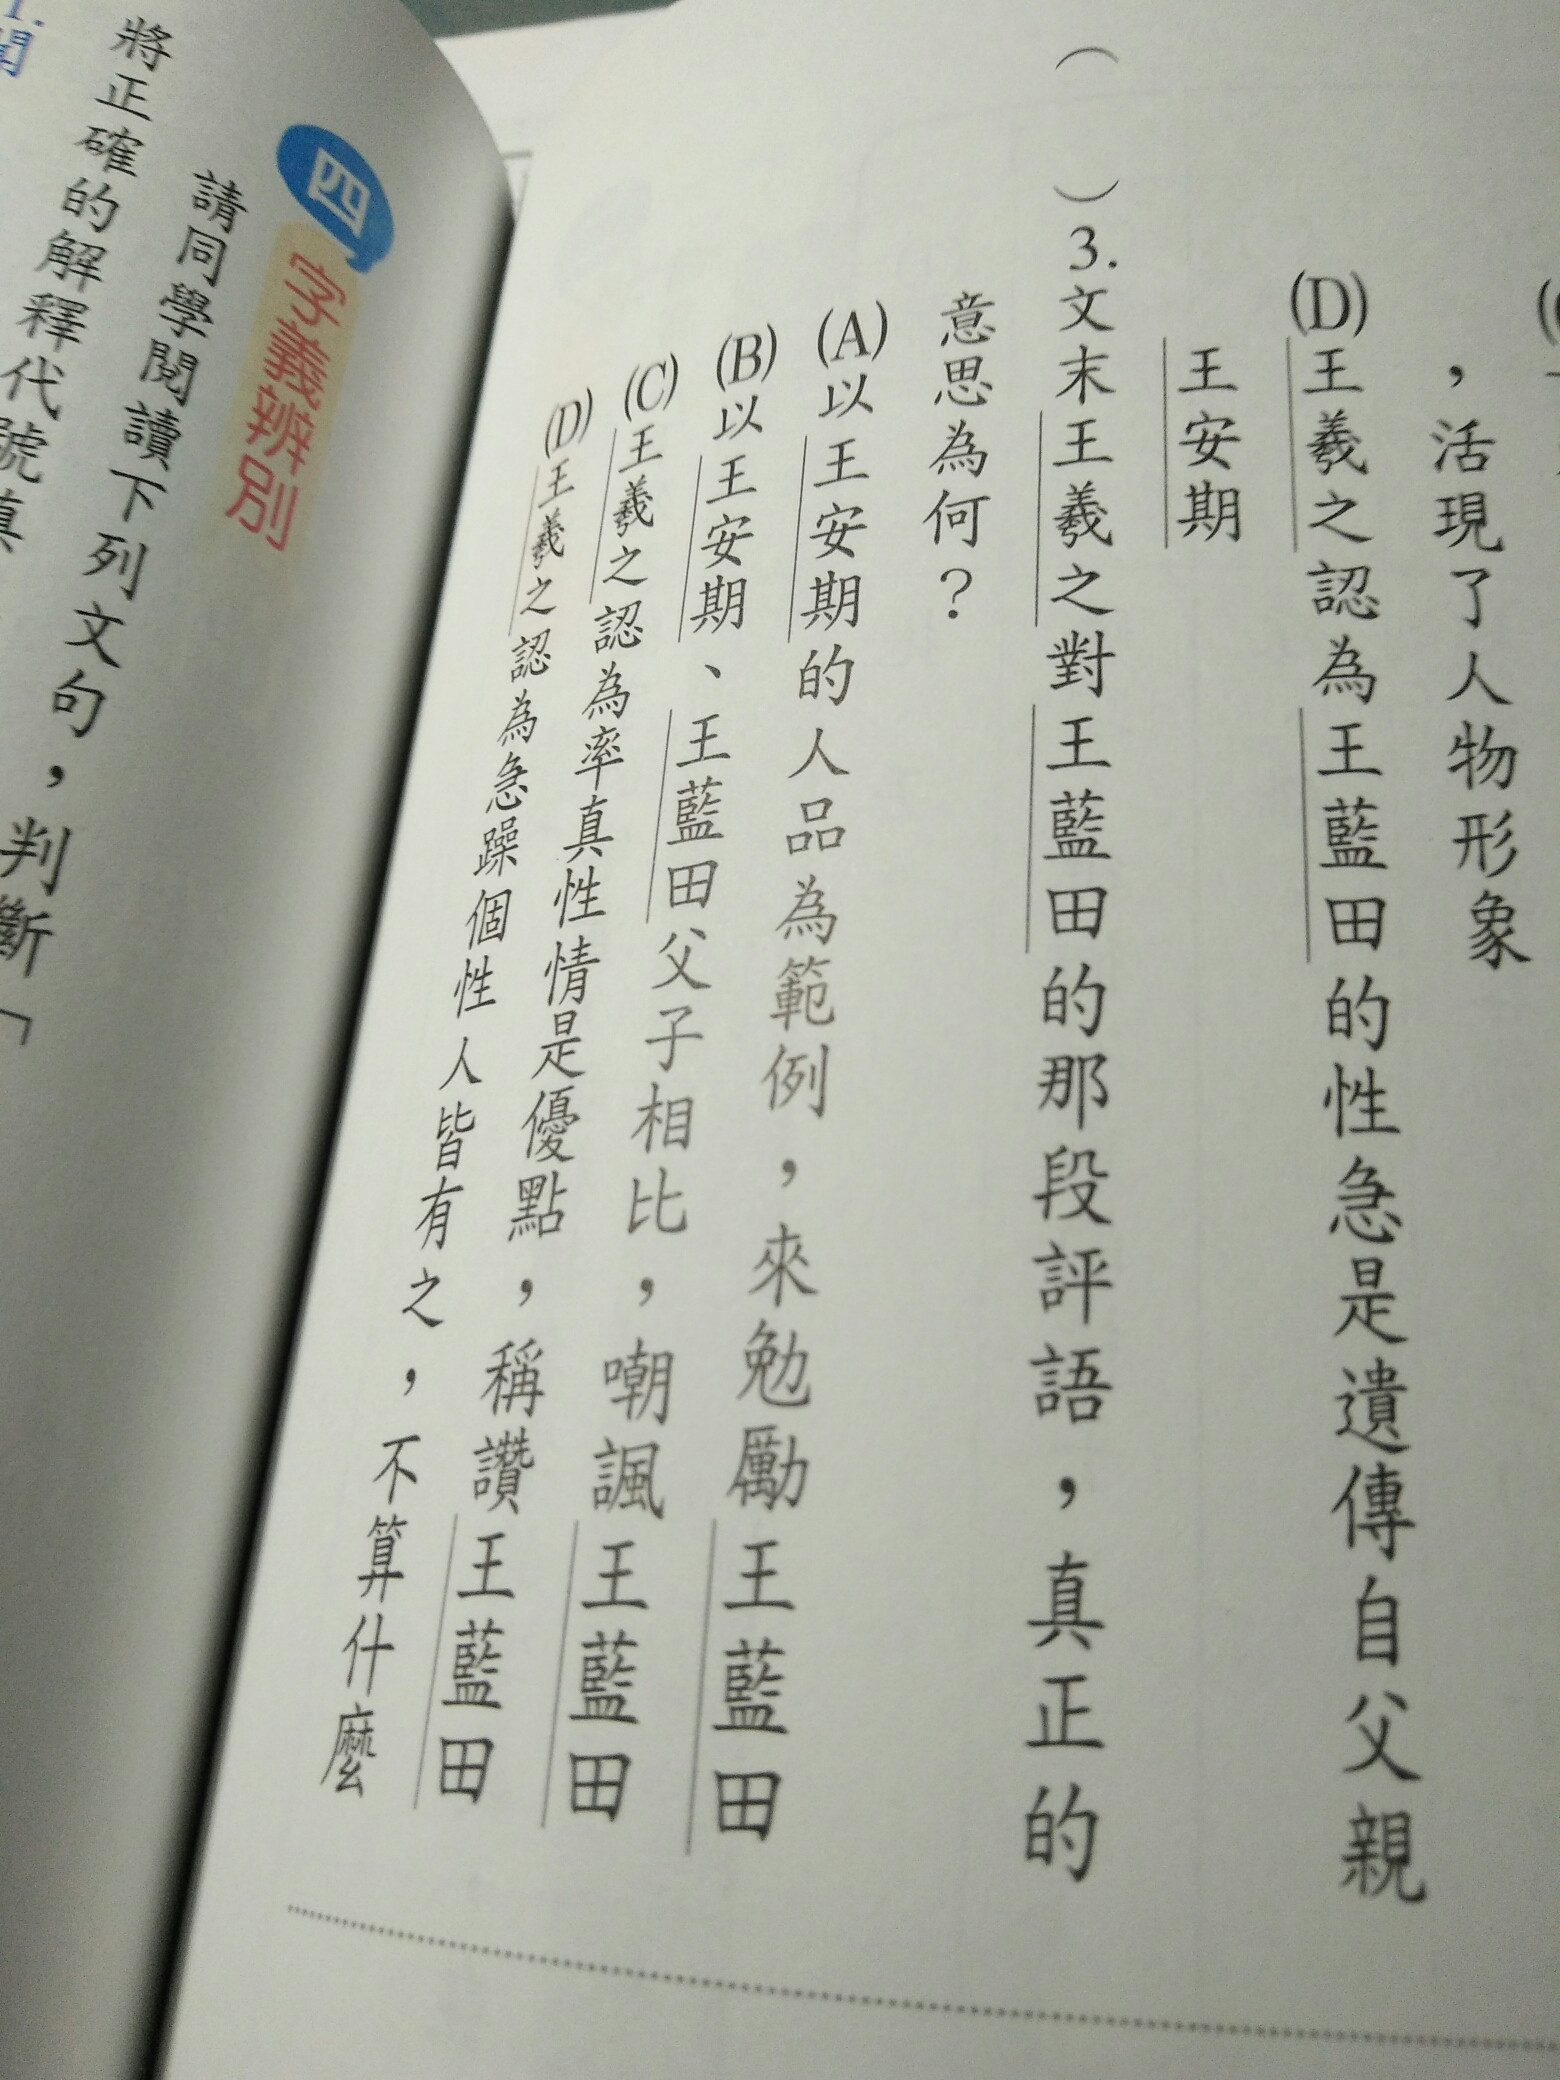 ，活現了人物形象
(D)王羲之認為王藍田的性急是遺傳自父親
王安期
（　）3.文末王羲之對王藍田的那段評語，真正的
意思為何？
(A)以王安期的人品為範例，來勉勵王藍田
(B)以王安期、王藍田父子相比，嘲諷王藍田
(C)王羲之認為率真性情是優點，稱讚王藍田
(D)王羲之認為急躁個性人皆有之，不算什麼
四 字義辨別
請同學閱讀下列文句，判斷「
將正確的解釋代號填